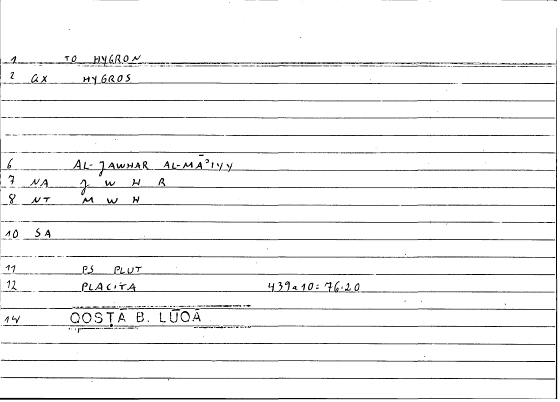 1 TO HYGRON
2 GX HYGROS
6 AL-JAWHAR AL-MĀʾIYY
7 NA J W H R
8 NT M W H
10 SA
11 PS PLUT
12 PLACITA 439a10=76.20
14 QOSṬA B. LŪQĀ